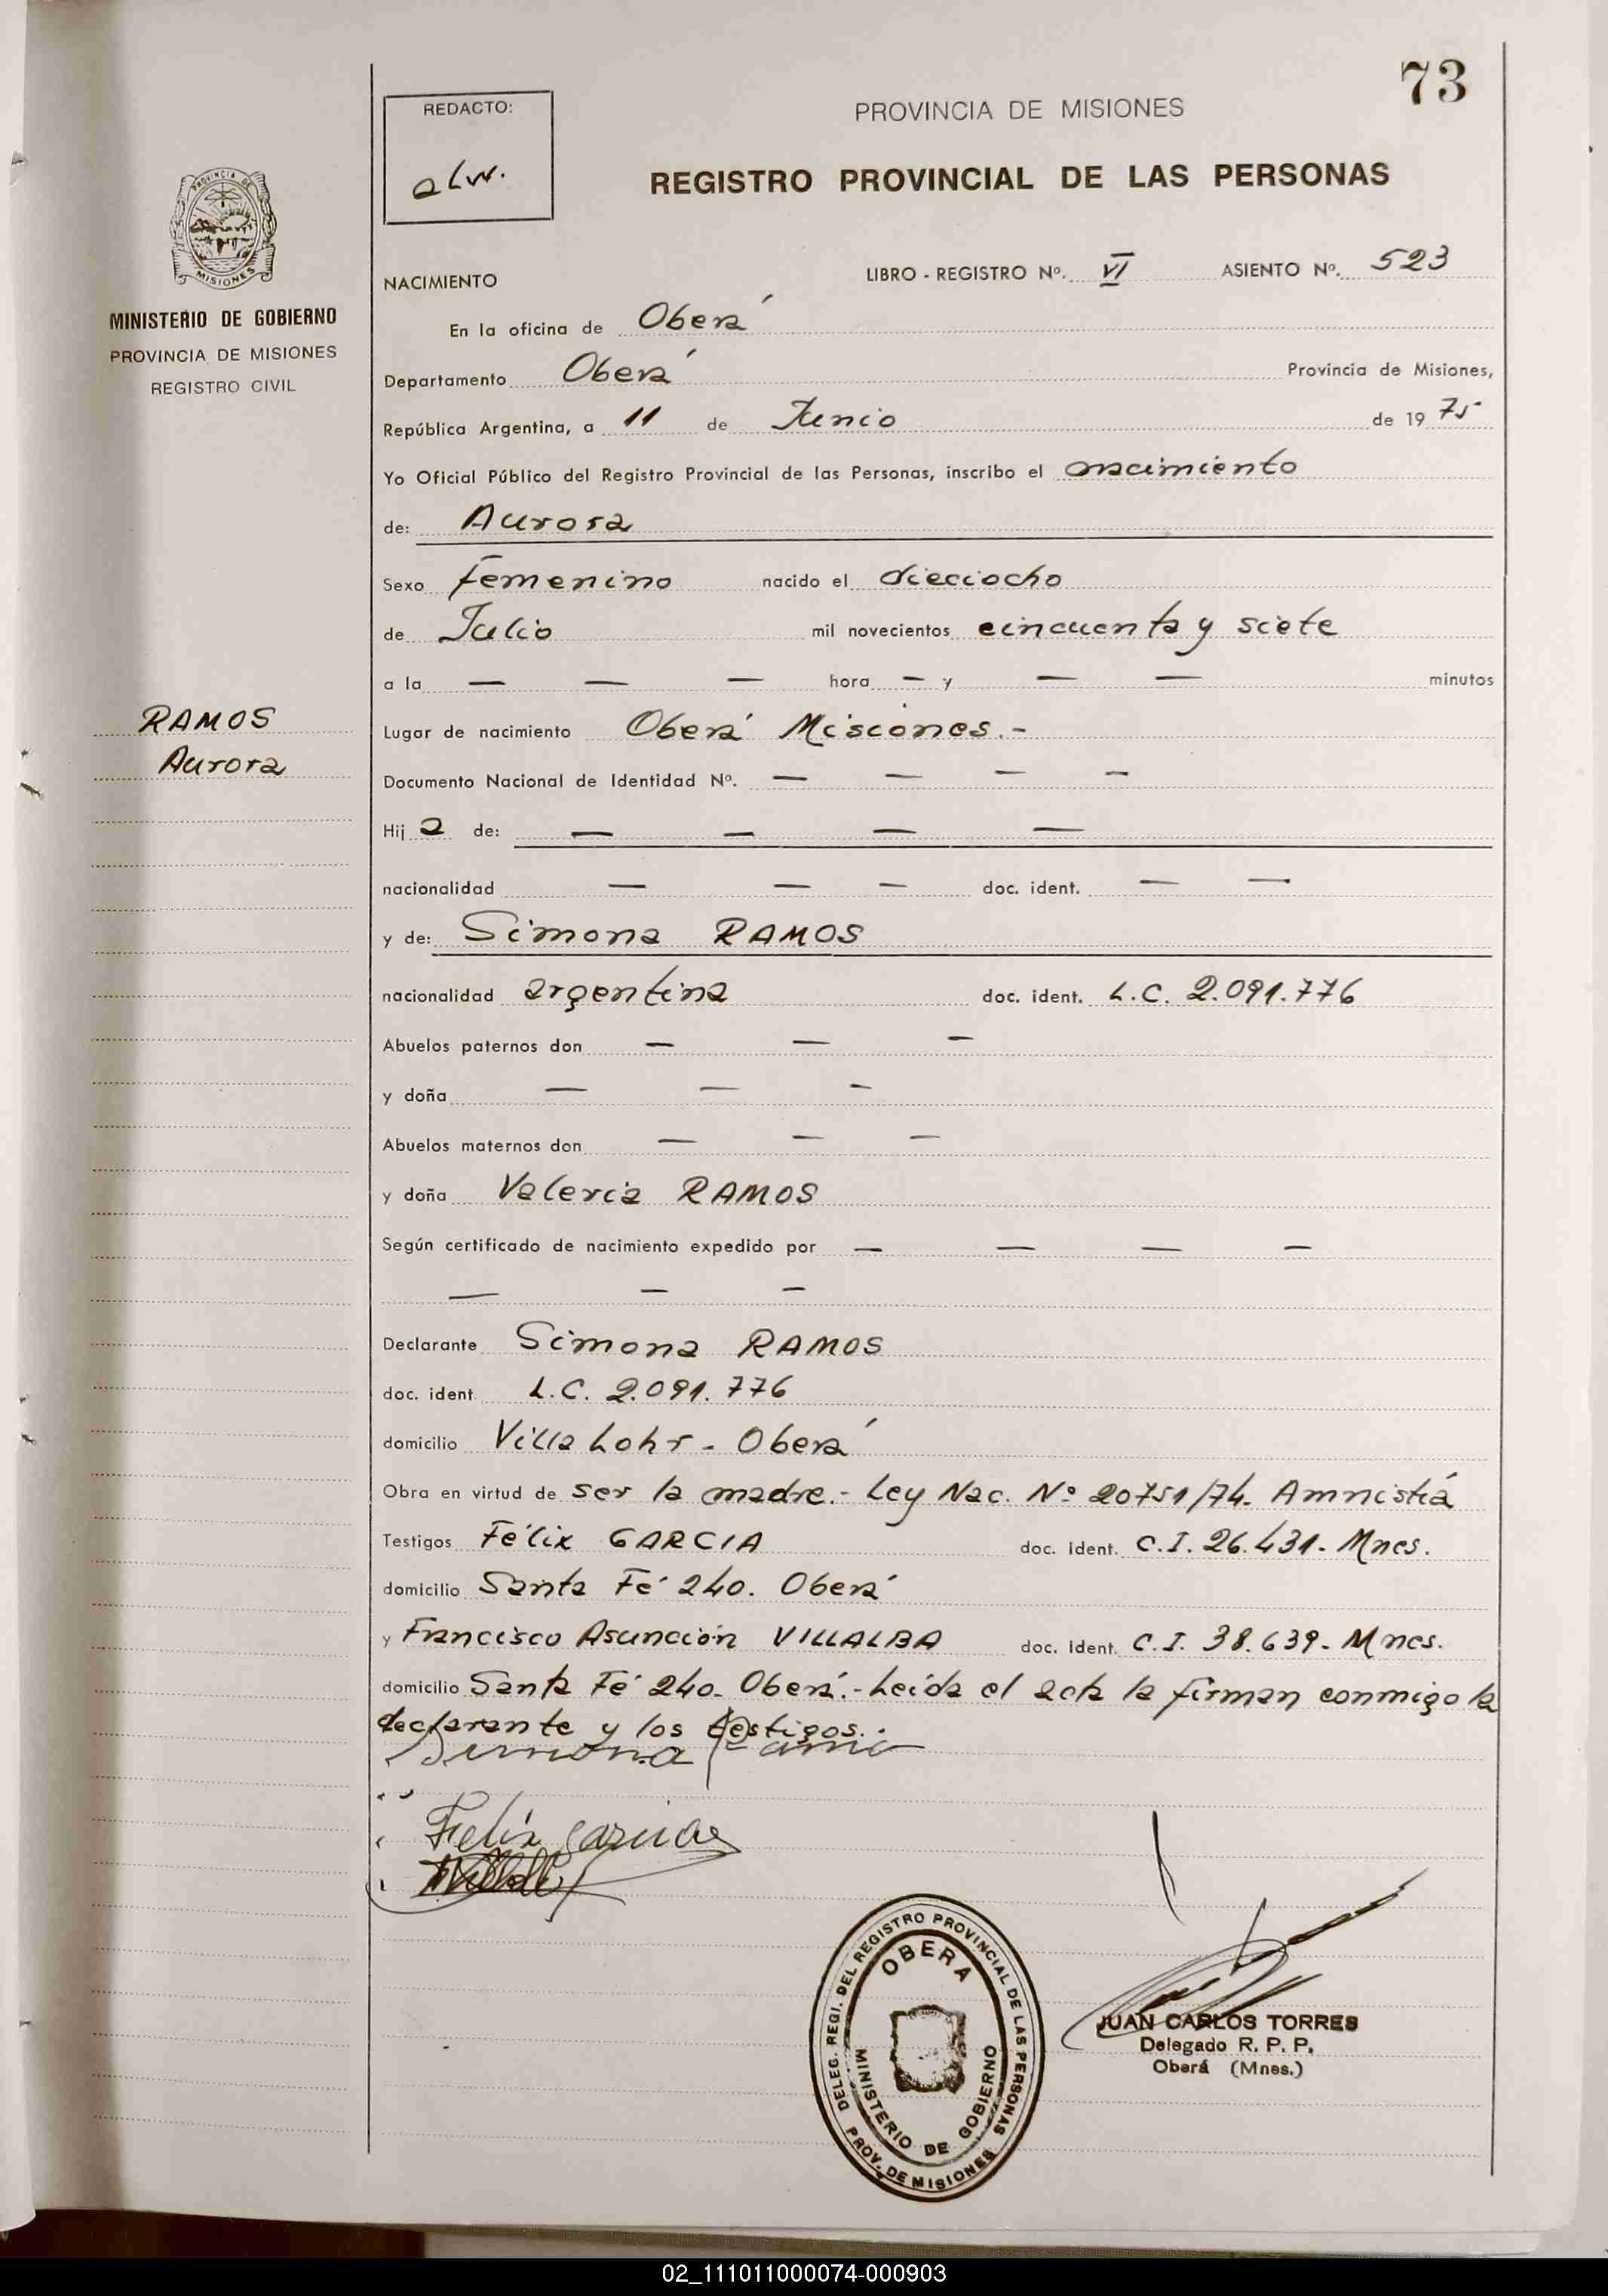 73
REDACTO:
PROVINCIA DE MISIONES
REGISTRO PROVINCIAL DE LAS PERSONAS
PROVINCIA DE
MISIONES
MINISTERIO DE GOBIERNO
PROVINCIA DE MISIONES
REGISTRO CIVIL
NACIMIENTO LIBRO - REGISTRO Nº. VI ASIENTO Nº. 523
En la oficina de Oberá
Departamento Oberá Provincia de Misiones,
República Argentina, a 11 de Junio de 19 75
Yo Oficial Público del Registro Provincial de las Personas, inscribo el nacimiento
de: Aurora
Sexo femenino nacido el dieciocho
de Julio mil novecientos cincuenta y siete
a la — — — hora — y — — minutos
RAMOS
Aurora
Lugar de nacimiento Oberá Misiones.-
Documento Nacional de Identidad Nº. — — — —
Hij a de: — — — —
nacionalidad — — — doc. ident. — —
y de: Simona RAMOS
nacionalidad argentina doc. ident. L.C. 2.091.776
Abuelos paternos don — — —
y doña — — —
Abuelos maternos don — — —
y doña Valeria RAMOS
Según certificado de nacimiento expedido por — — — —
— — —
Declarante Simona RAMOS
doc. ident L.C. 2.091.776
domicilio Villa Lohr - Oberá
Obra en virtud de ser la madre.- Ley Nac. Nº 20751/74. Amnistiá
Testigos Félix GARCIA doc. ident. C.I. 26.431- Mnes.
domicilio Santa Fé 240. Oberá
y Francisco Asunción VILLALBA doc. ident. C.I. 38.639- Mnes.
domicilio Santa Fé 240- Oberá.- Leída el acta la firman conmigo la
declarante y los testigos.-
Simona Ramo
Felix Garcia
DELEG. REGI. DEL REGISTRO PROVINCIAL DE LAS PERSONAS
PROV. DE MISIONES
OBERA
MINISTERIO DE GOBIERNO
JUAN CARLOS TORRES
Delegado R. P. P.
Oberá (Mnes.)
02_111011000074-000903